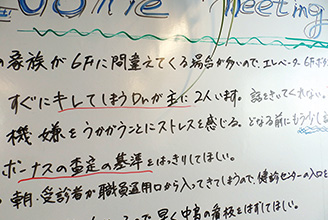 Meeting
の家族が6Fに間違えてくる場合が多いので、エレベーター6Fボタ
すぐにキレてしまうDrが主に2人います。話をきいてくれない。
機嫌をうかがうことにストレスを感じる。どなる前にもう少し
ボーナスの査定の基準をはっきりしてほしい。
・受診者が職員通用口から入ってきてしまうので、健診センターの入口を
早く中央の看板をはずしてほしい。